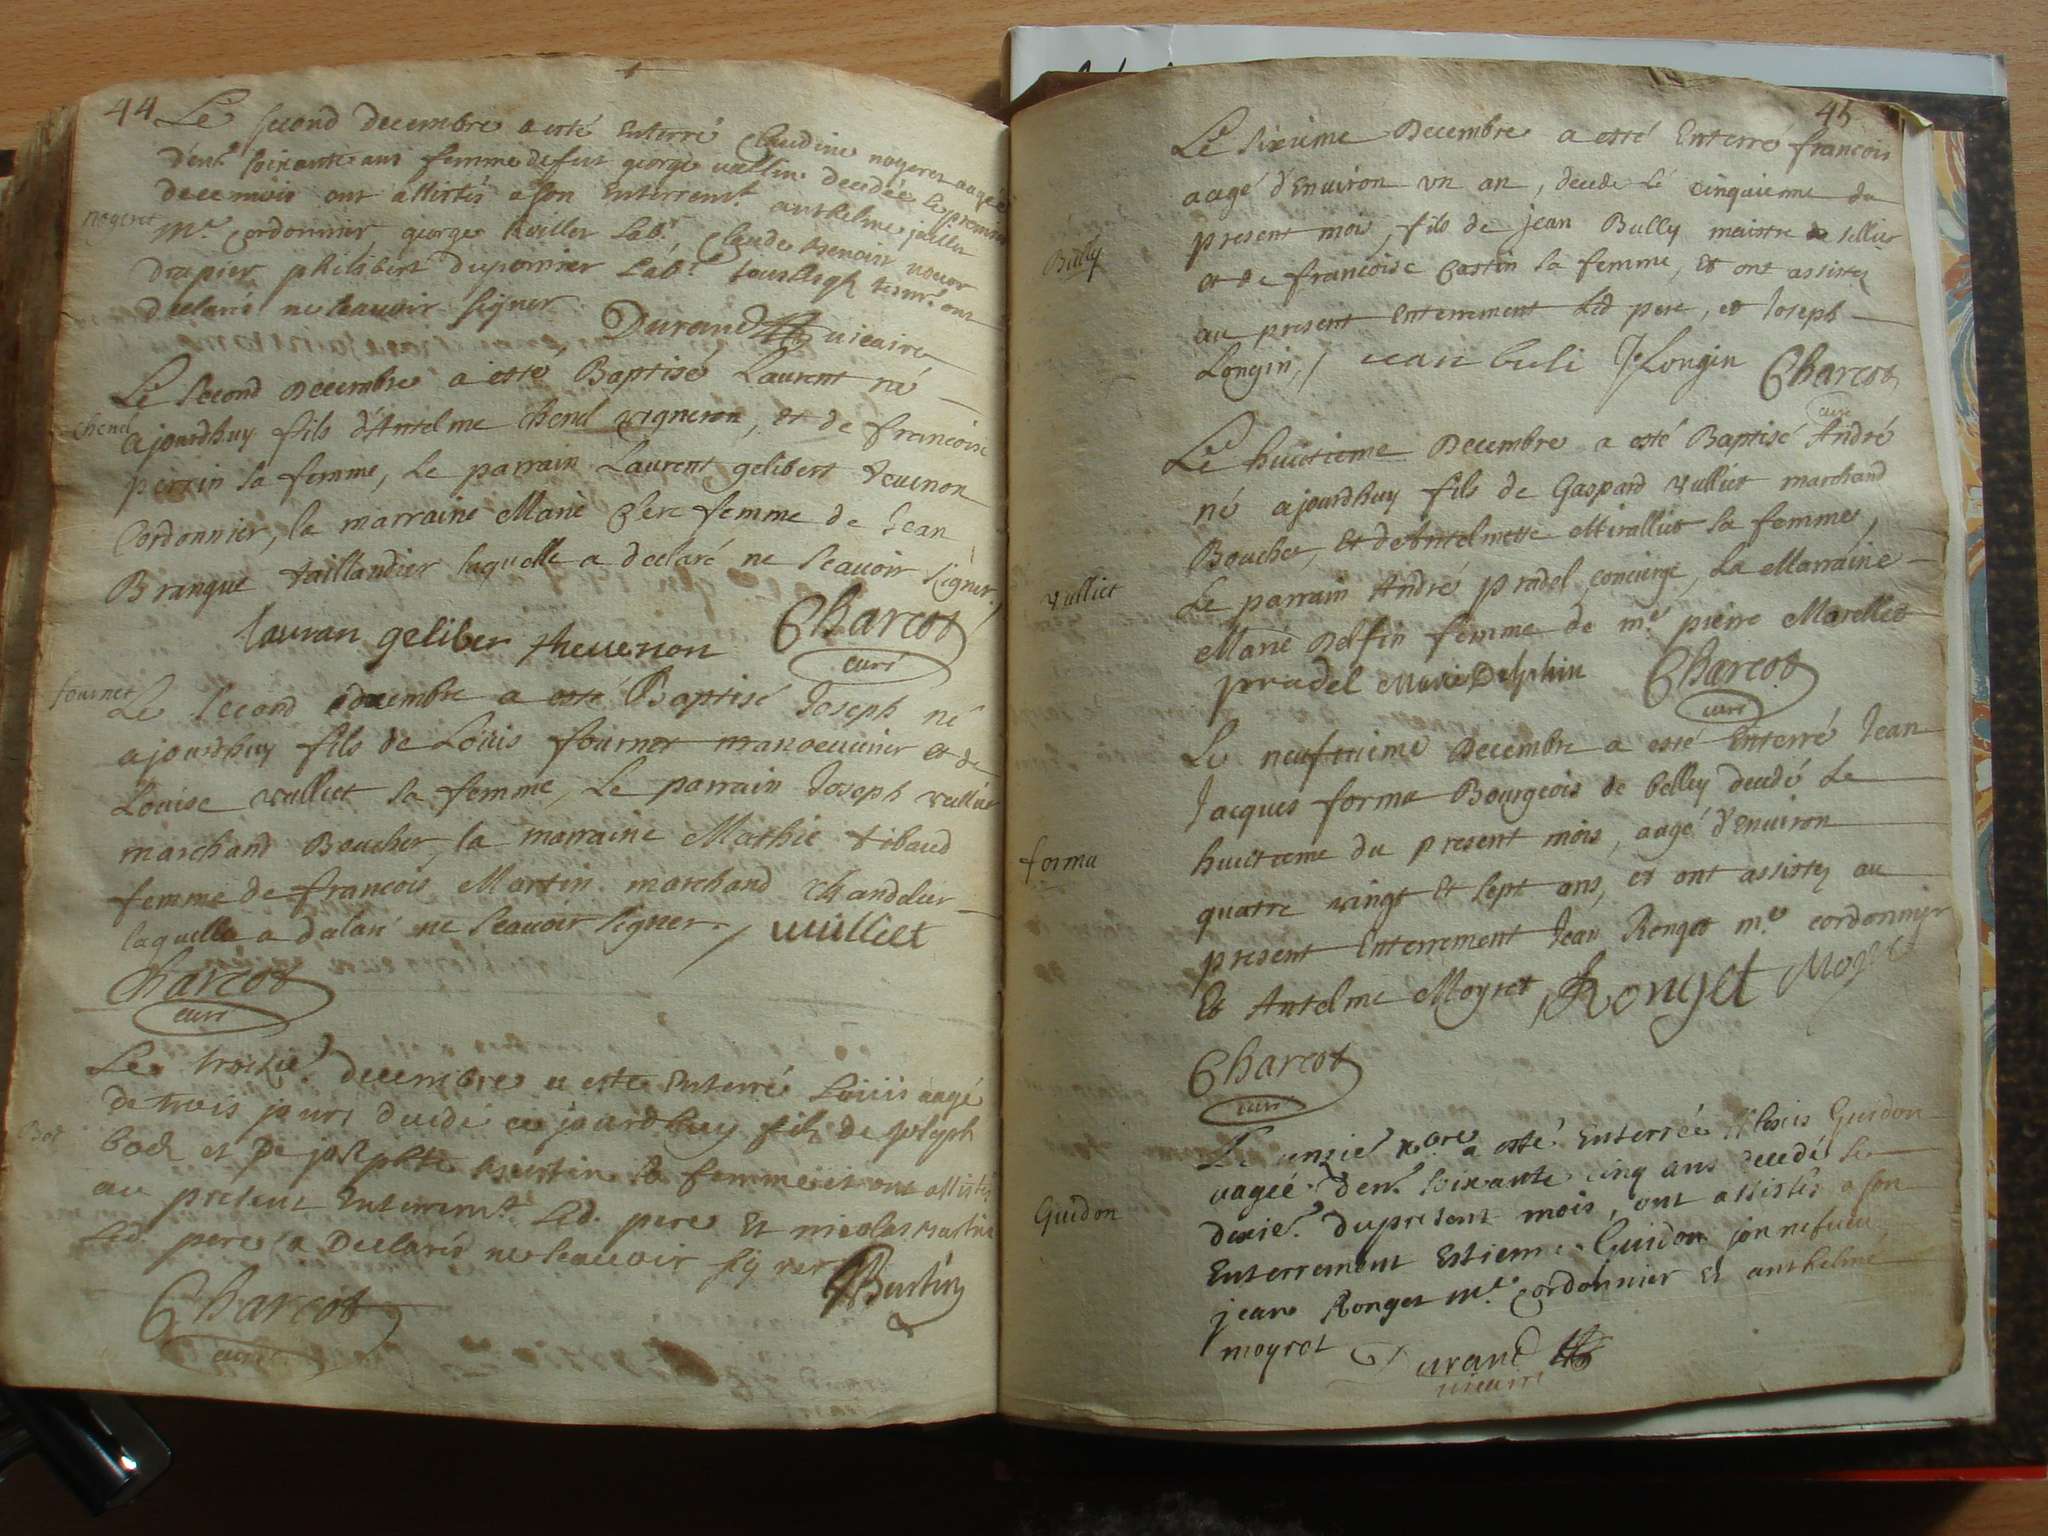 44
Le second decembre a esté Enterré Claudine noyeret aagée
d'env. soixante ans femme de feu george vallin decedée le premier
de ce mois ont assistés a son Enterremt. anthelme jallin
noyeret
Mre. Cordonnier, george Labr. Claude
drapier philibert Labr. ont
declaré ne scauoir signer. Durand vicaire
Le second decembre a esté Baptisé Laurent né
chenel
ajourdhuy fils d'Antelme chenel vigneron, et de francoise
perrin sa femme, Le parrain Laurent gelibert tevenon
Cordonnier, la marraine Marie femme de Jean
Branque taillandier laquelle a declaré ne scauoir signer,
lauran geliber theuenon Charcot
curé
fournet
Le second decembre a esté Baptisé Joseph né
ajourdhuy fils de Loüis fournet manoeuurier et de
Louise vulliet sa femme, Le parrain Joseph vulliet
marchand Boucher, la marraine Mathie tibaud
femme de francois Martin marchand chandelier
laquelle a delaré ne scauoir signer, / vuilliet
Charcot
curé
Le troizie. decembre a este Enterré Loüis aagé
de trois jours decedé ce jourdhuy fils de joseph
Bot
et de josephte sa femme et ont assistés
au present Enterremt. Led. pere Et nicolas
Led. pere a Declaré ne scauoir signer
Charcot
curé
45
Le sixieme Decembre a esté Enterré francois
aagé d'Enuiron vn an, decedé Le cinquieme du
present mois, fils de jean Bully maistre sellier
Bully
et de francoise Castin sa femme, et ont assistez
au present Enterrement Led pere, et Joseph
Longin, / iean buli J Longin Charcot
curé
Le huictieme Decembre a esté Baptisé André
né ajourdhuy fils de Gaspard vulliet marchand
Boucher, Et de Antelmette Miralliet sa femme,
vulliet
Le parrain André pradel concierge, La Marraine
Marie Delfin femme de me. pierre Marellet
pradel Marie Delphin Charcot
curé
Le neufuieme Decembre a esté Enterré Jean
Jacques forma Bourgeois de belley decedé Le
forma
huictieme du present mois, aagé d'Enuiron
quatre vingt Et sept ans, et ont assistez au
present Enterrement Jean Ronget me. cordonnier
Et Antelme Moyret Ronget
Charcot
curé
Le unzie. xbre a esté Enterré Guidon
aageé d'env. soixante cinq ans decedé le
dixie. du present mois, ont assistés a son
Guidon
Enterrement Estienne Guidon son nefueu
jean Ronget Me. Cordonnier Et anthelme
moyret Durand
vicaire